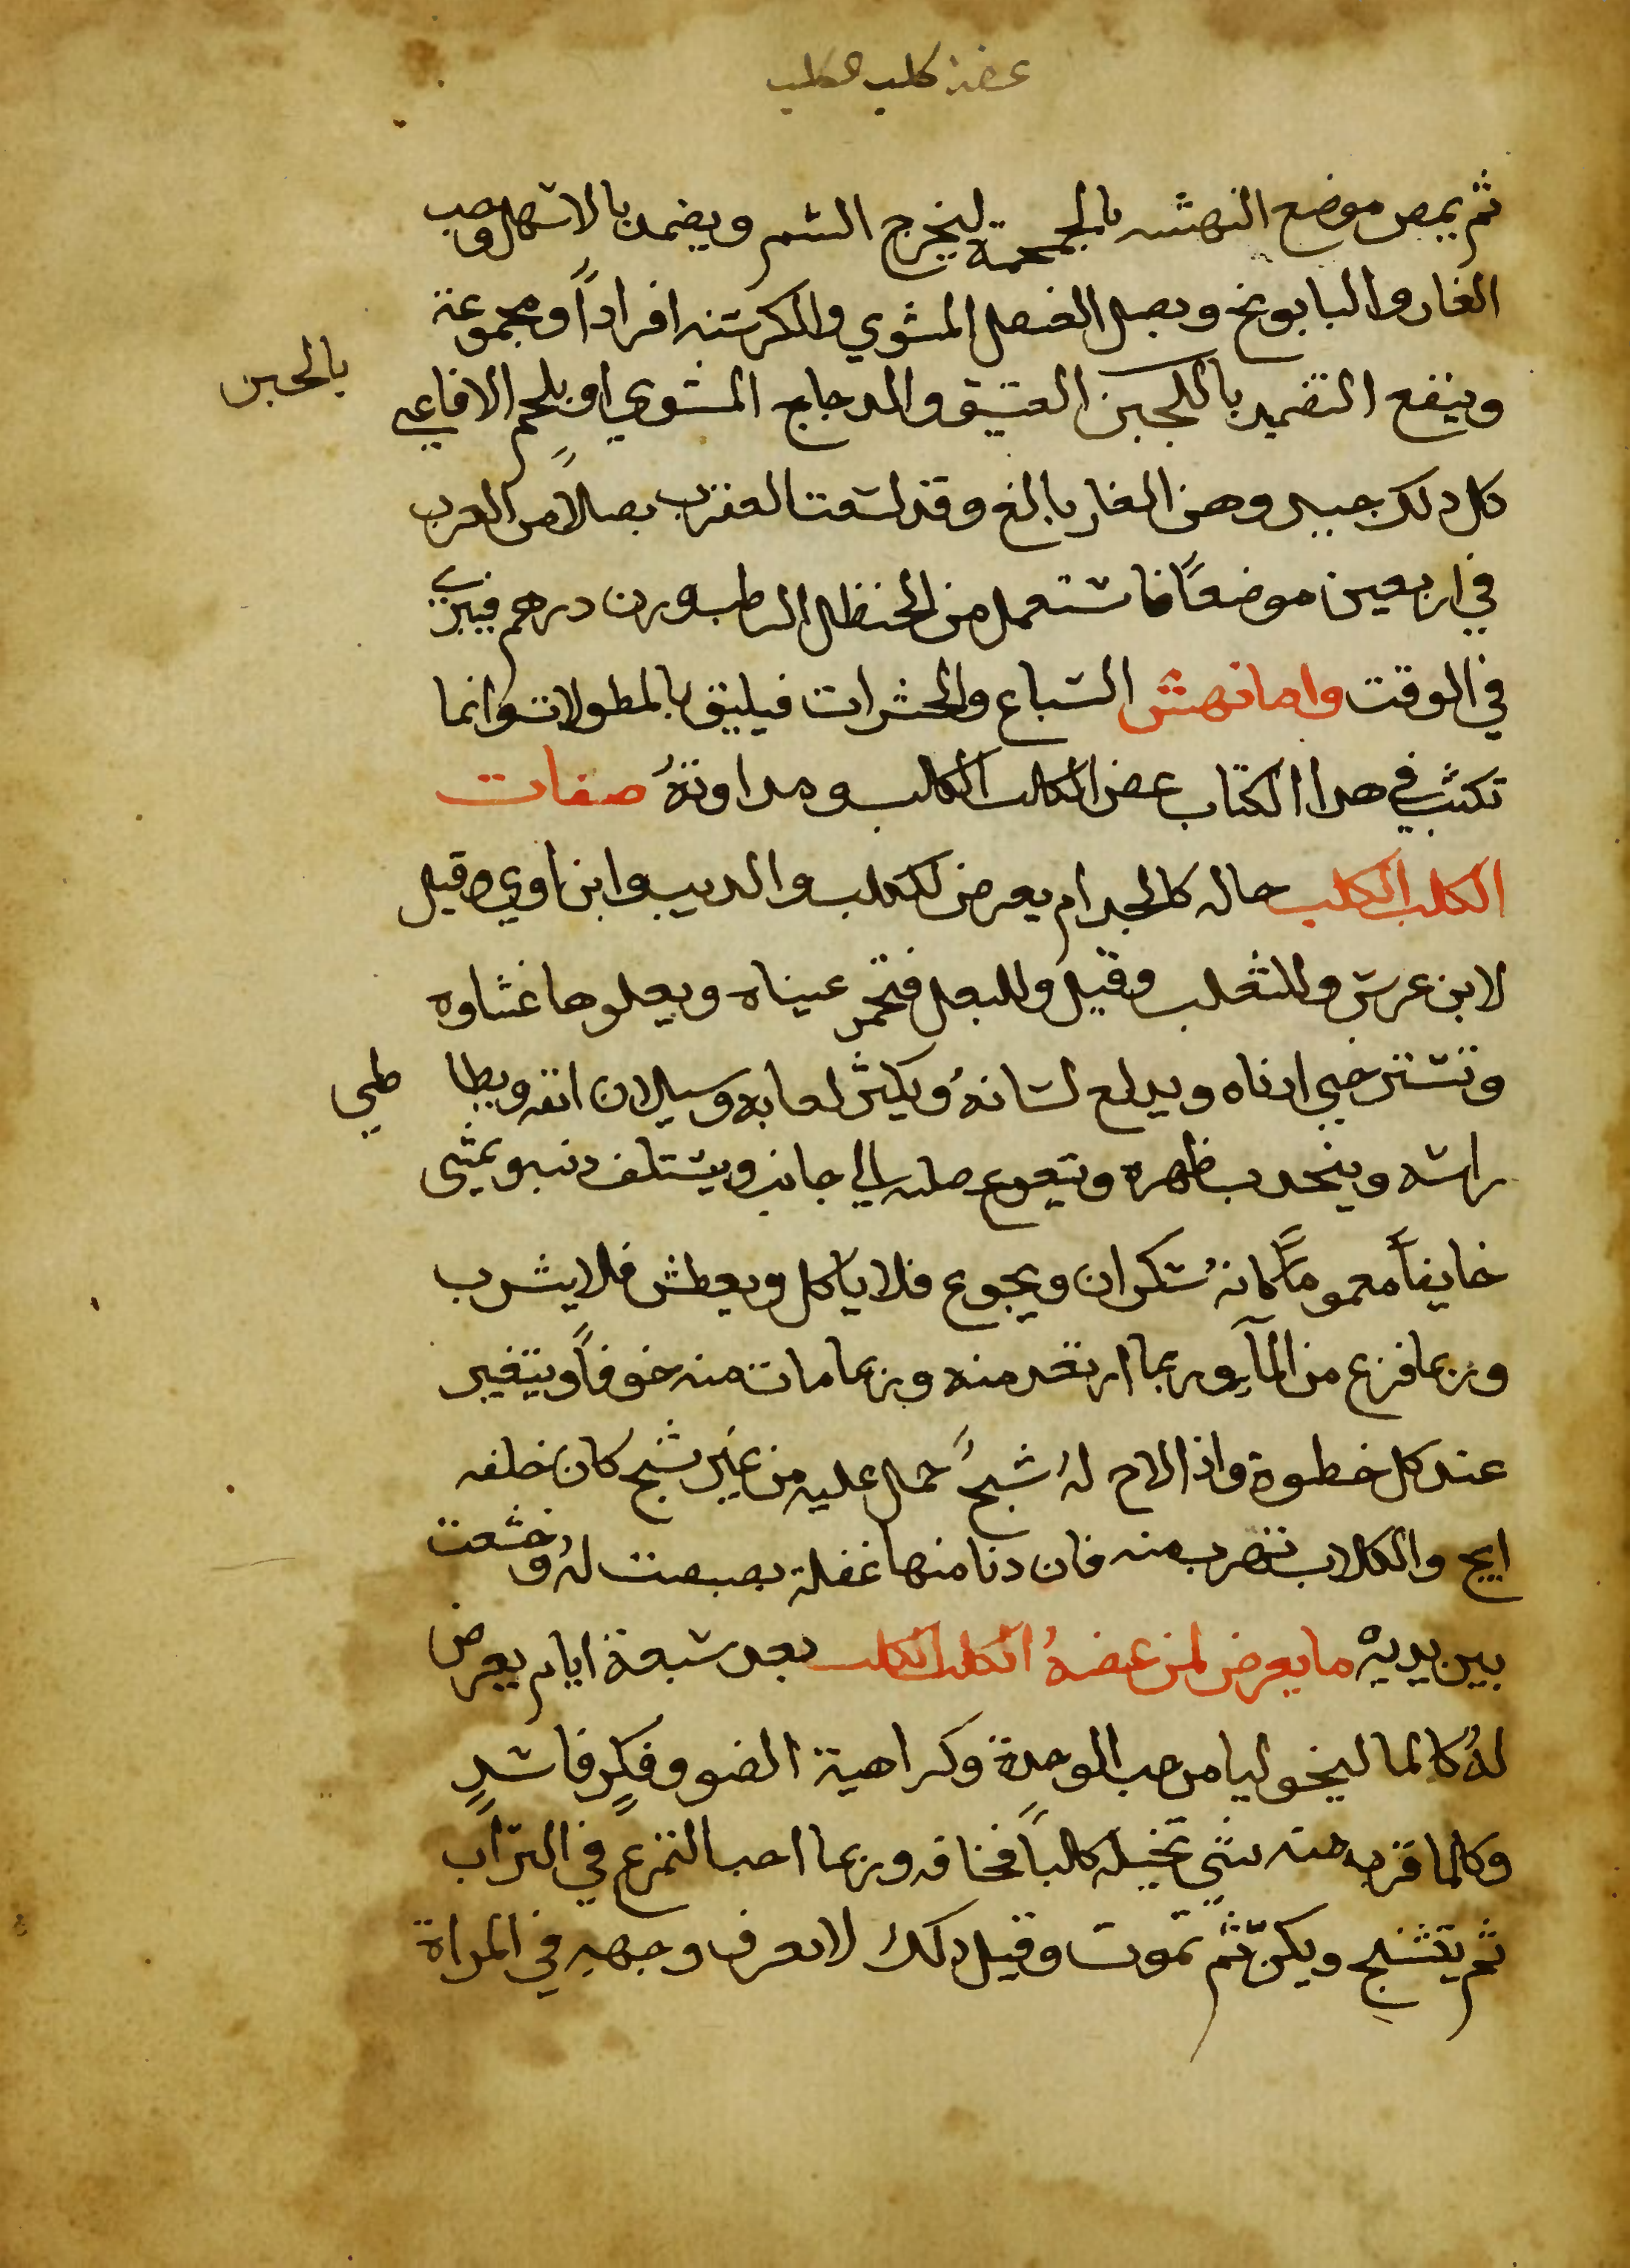 عضة كلب الكلب
ثم يمص موضع النهشه بالمحجمة ليخرج السم ويضمد بالاسهل وحب
الغار والبابونج وبصل العنصل المشوي والكرسنه افراداً ومجموعة
وينفع التضميد باللجبن العتيق والدجاج المشوي او بلحم الافاعي
بالجبن
كل دلك جيد وهن الغار بالغ وقد لسعت العقرب بصلاً من العرب
في اربعين موضعاً فاستعمل من الحنظل الرطب وزن درهم فبرئ
في الوقت واما نهش السباع والحشرات فيليق بالمطولات وانما
تكتب في هدا الكتاب عض الكلب الكلب ومداوتهُ صفات
الكلب الكلب حاله كالجدام يعرض للكلب والديب وابن اوي وقيل
لابن عرس وللثعلب وقيل وللبعل فتحمر عيناه ويعلوها غشاوه
وتسترخي ادناه ويدلع لسانهُ ويكثر لعابه وسيلان انفه ويطا
طي
راسه وينحدب ظهره ويتعوج صلبه الي جانب ويستلف دنبه ويمشي
خايفاً معموماً كانهُ سكران ويجوع فلا ياكل ويعطش فلا يشرب
وربما فزع من المآء وربما ارتعد منه وربما مات منه خوفاً ويتغير
عند كل خطوة واذا لاح لهُ شبحُ حمل عليه من غير شبح كان خلفه
ابح والكلاب تهرب منه فان دنا منها غفلة بصبصت لهُ وخشعت
بين يديه ما يعرض لمن عضهُ الكلب الكلب بعد سبعة ايام يعرض
لهُ كالماليخوليا من حب الوحدة وكراهية الضو وفكرٍ فاسدٍ
وكلما قرب منه شي تخيله كلباً فخافه وربما احب التمرع في التراب
ثم يتشنج ويكزّ ثم تموت وقبل دلك لا يعرف وجهه في المراة